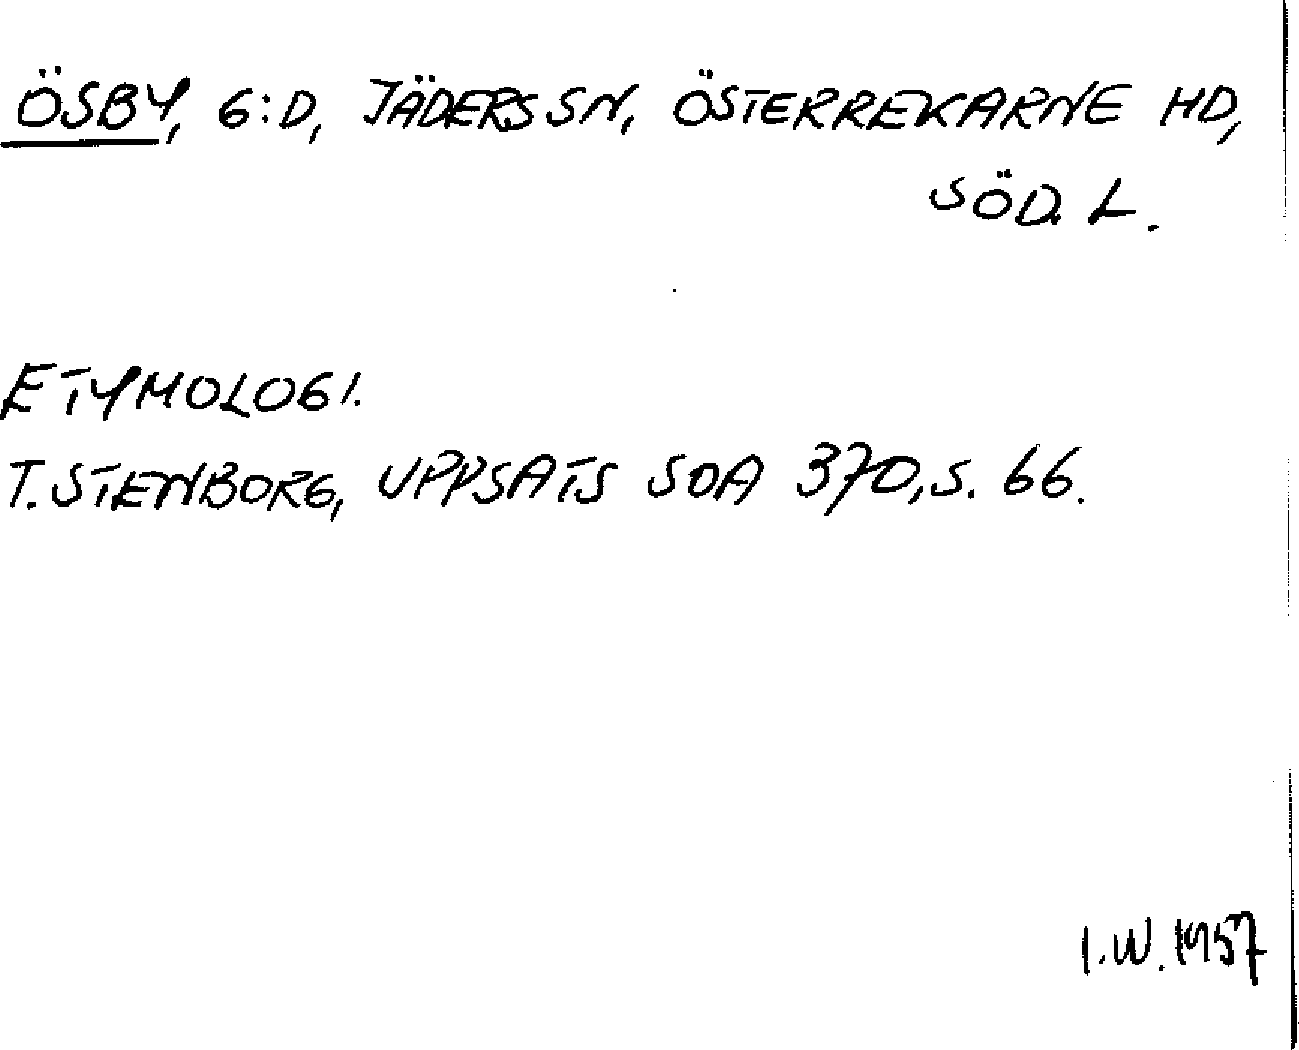 ÖSBY, G:D, JÄDERS SN, ÖSTERREKARNE HD,
SÖD. L.
ETYMOLOGI.
T. STENBORG, UPPSATS SOA 370, S. 66.
I.W. 1957